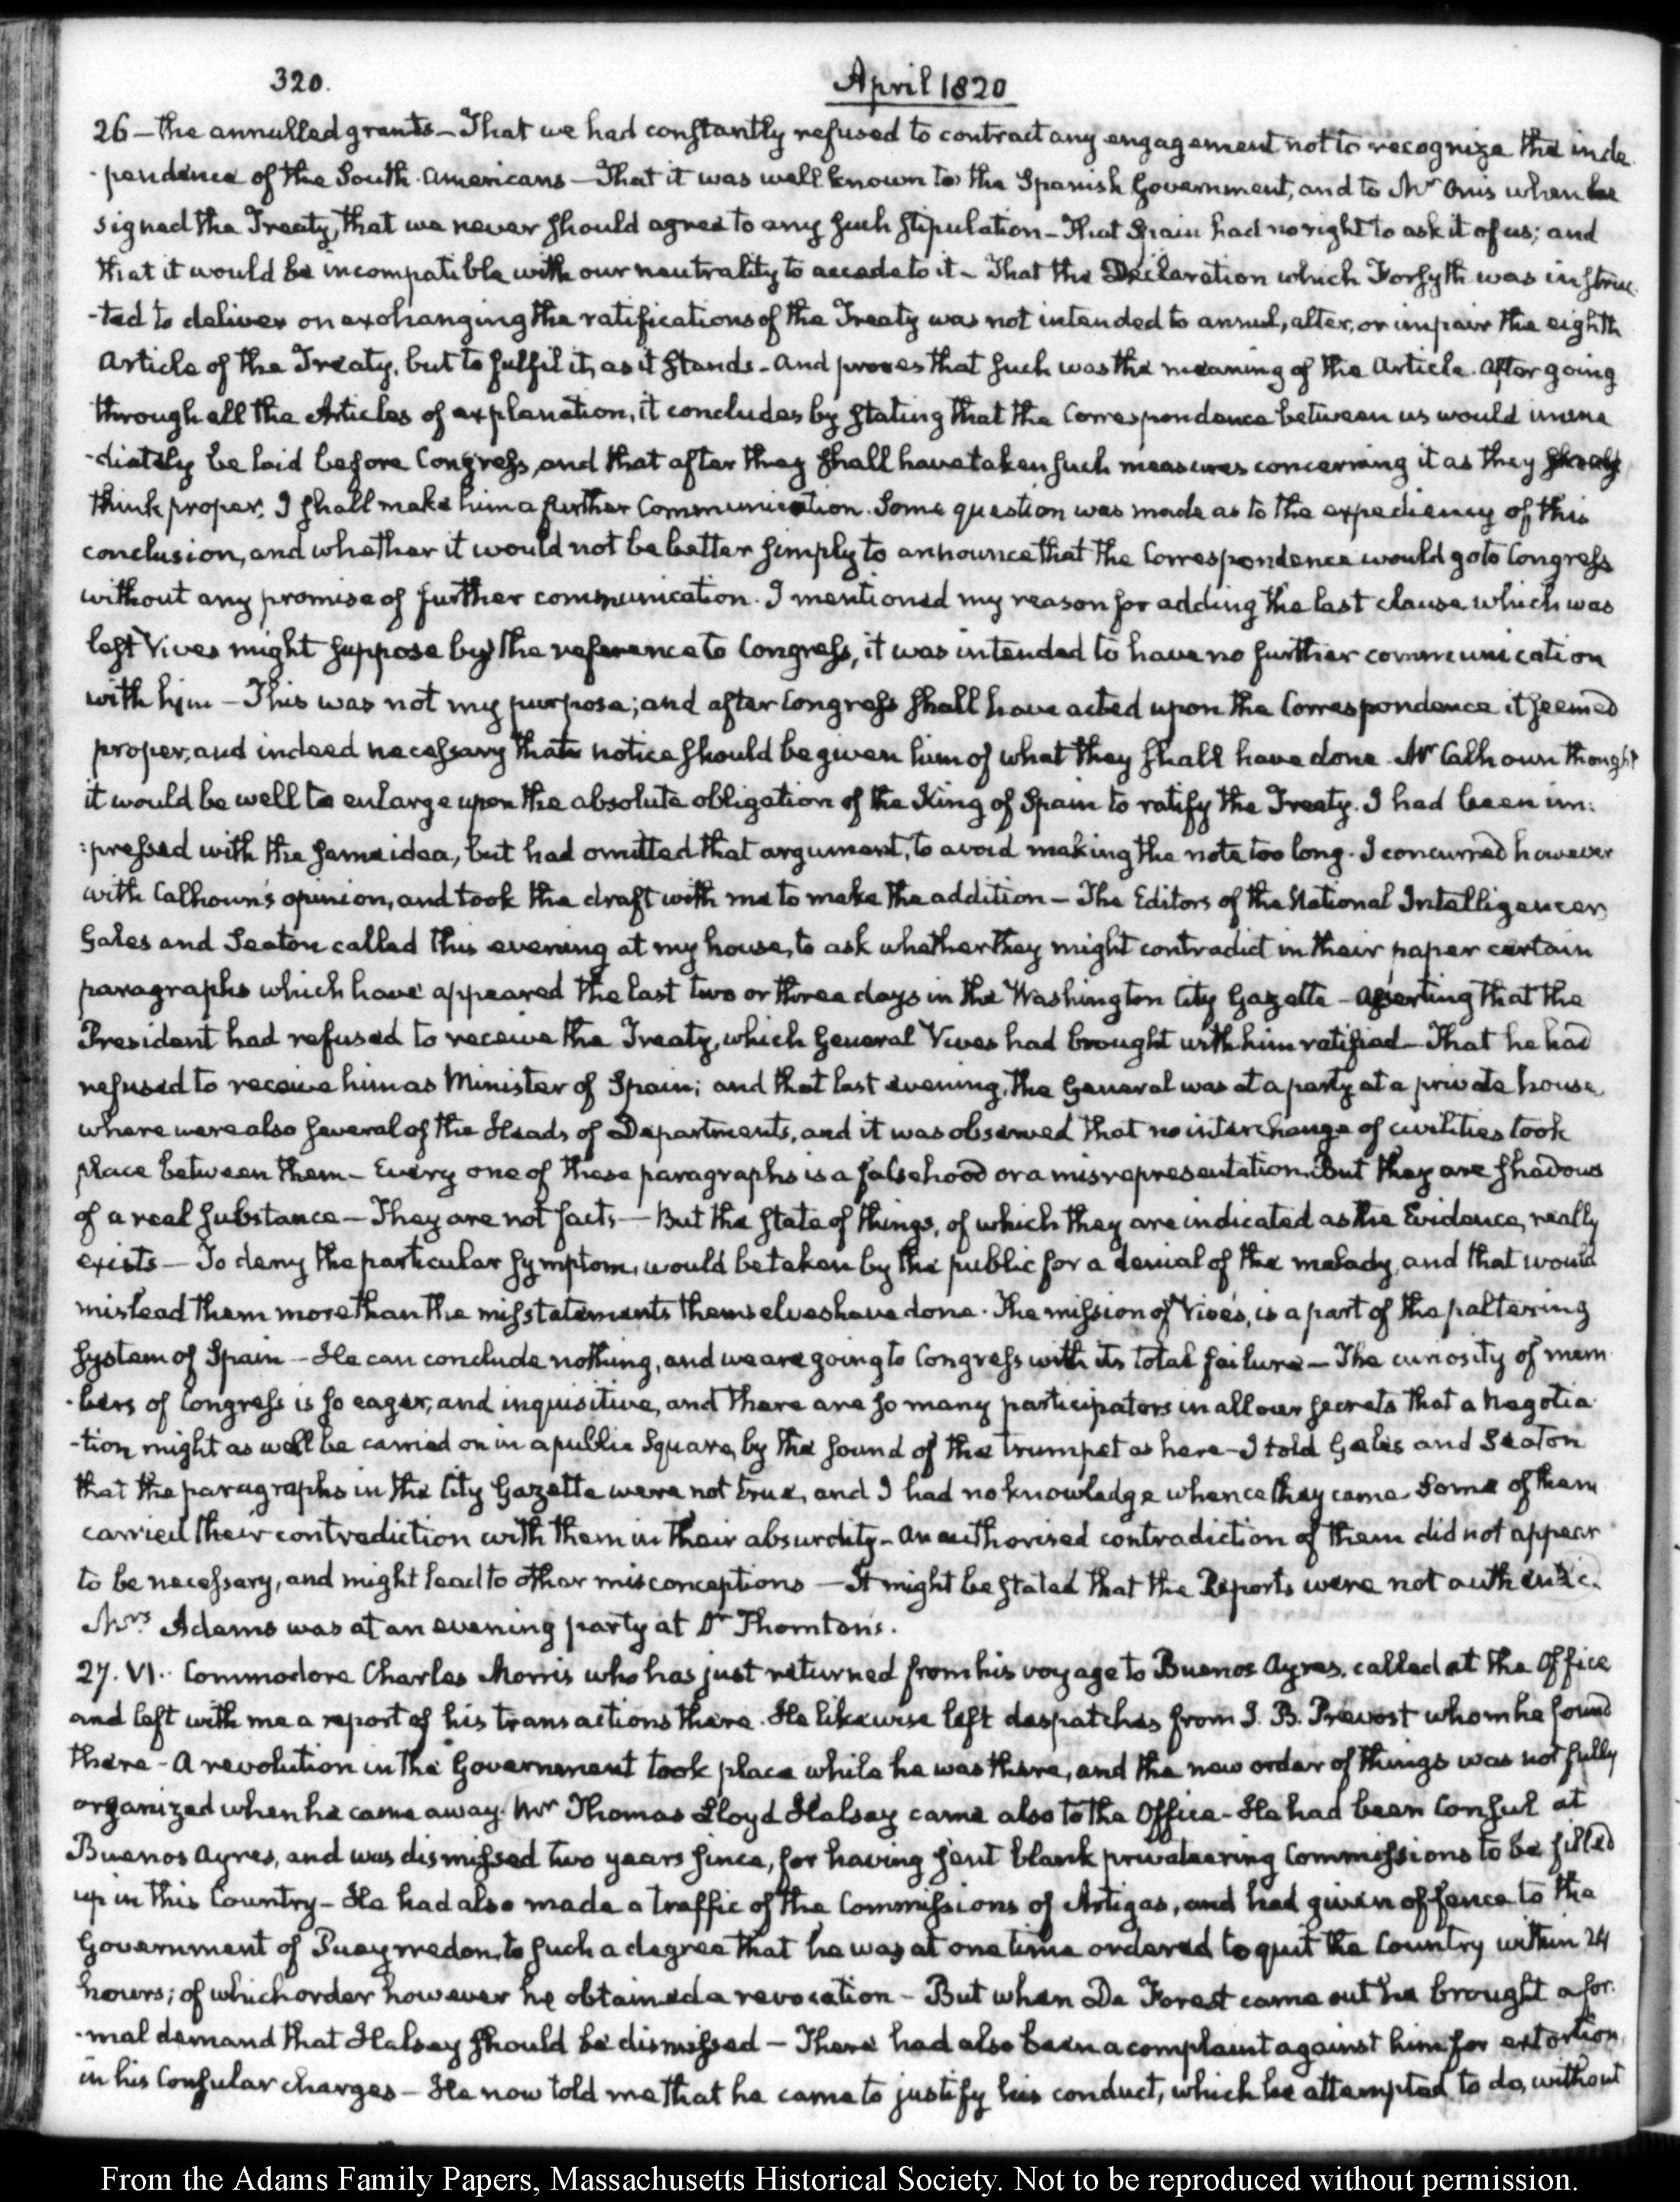 320.
April 1820
26 — the annulled grants — That we had constantly refused to contract any engagement not to recognize the inde
-pendence of the South Americans — That it was well known to the Spanish Government, and to Mr Onis when he
signed the Treaty, that we never should agree to any such stipulation — That Spain had no right to ask it of us; and
that it would be incompatible with our neutrality to accede to it — That the Declaration which Forsyth was instruc
-ted to deliver on exchanging the ratifications of the Treaty was not intended to annul, alter, or impair the eighth
Article of the Treaty, but to fulfil it, as it stands — And proves that such was the meaning of the Article. After going
through all the Articles of explanation, it concludes by stating that the Correspondence between us would imme
-diately be laid before Congress, and that after they shall have taken such measures concerning it as they shall
think proper, I shall make him a further Communication. Some question was made as to the expediency of this
conclusion, and whether it would not be better simply to announce that the Correspondence would go to Congress
without any promise of further communication. I mentioned my reason for adding the last clause which was
lest Vives might suppose by the reference to Congress, it was intended to have no further communication
with him — This was not my purpose; and after Congress shall have acted upon the Correspondence it seemed
proper, and indeed necessary that notice should be given him of what they shall have done. Mr Calhoun thought
it would be well to enlarge upon the absolute obligation of the King of Spain to ratify the Treaty. I had been im:
:pressed with the same idea, but had omitted that argument, to avoid making the note too long. I concurred however
with Calhoun's opinion, and took the draft with me to make the addition — The Editors of the National Intelligencer,
Gales and Seaton called this evening at my house, to ask whether they might contradict in their paper certain
paragraphs which have appeared the last two or three days in the Washington City Gazette — Asserting that the
President had refused to receive the Treaty, which General Vives had brought with him ratified — That he had
refused to receive him as Minister of Spain; and that last evening, the General was at a party at a private house
where were also several of the Heads of Departments, and it was observed that no interchange of civilities took
place between them — Every one of these paragraphs is a falsehood or a misrepresentation. But they are shadows
of a real substance — They are not facts — But the state of things, of which they are indicated as the Evidence, really
exists — To deny the particular symptom, would be taken by the public for a denial of the malady, and that would
mislead them more than the misstatements themselves have done. The mission of Vives, is a part of the paltering
system of Spain — He can conclude nothing, and we are going to Congress with its total failure — The curiosity of mem
-bers of Congress is so eager, and inquisitive, and there are so many participators in all our secrets that a Negotia
-tion might as well be carried on in a public Square, by the sound of the trumpet as here — I told Gales and Seaton
that the paragraphs in the City Gazette were not true, and I had no knowledge whence they came. Some of them
carried their contradiction with them in their absurdity — An authorised contradiction of them did not appear
to be necessary, and might lead to other misconceptions — It might be stated that the Reports were not authentic.
Mrs. Adams was at an evening party at Dr Thornton's.
27. VI. Commodore Charles Morris who has just returned from his voyage to Buenos Ayres, called at the Office
and left with me a report of his transactions there. He likewise left despatches from J. B. Prevost whom he found
there — A revolution in the Government took place while he was there, and the new order of things was not fully
organized when he came away. Mr Thomas Lloyd Halsey came also to the Office — He had been Consul at
Buenos Ayres, and was dismissed two years since, for having sent blank privateering Commissions to be filled
up in this Country — He had also made a traffic of the Commissions of Artigas, and had given offence to the
Government of Pueyrredon, to such a degree that he was at one time ordered to quit the Country within 24
hours; of which order however he obtained a revocation — But when De Forest came out he brought a for.
-mal demand that Halsey should be dismissed — There had also been a complaint against him for extortion
in his Consular charges — He now told me that he came to justify his conduct, which he attempted to do, without
From the Adams Family Papers, Massachusetts Historical Society. Not to be reproduced without permission.